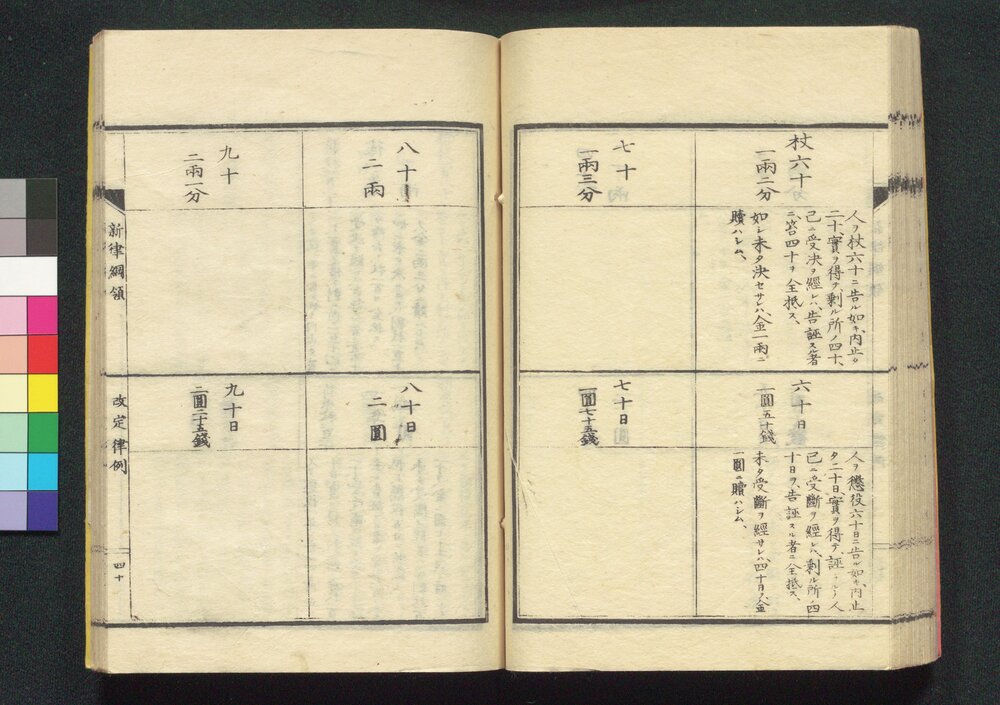 杖六十
一兩二分
人ヲ杖六十ニ告ル如キ、内止タ
二十、實ヲ得テ、剩ル所ノ四十、
已ニ受決ヲ經レハ、告誣スル者
ニ、笞四十ヲ全抵ス、
如シ未タ決セサレハ、金一兩ニ
贖ハシム、
七十
一兩三分
六十日
一圓五十錢
人ヲ懲役六十日ニ告ル如キ、内止
タ二十日、實ヲ得テ、誣ラルヽ人
已ニ受斷ヲ經レハ、剩ル所ノ四
十日ヲ、告誣スル者ニ全抵ス、
未タ受斷ヲ經サレハ、四十日ヲ、金
一圓ニ贖ハシム、
七十日
一圓七十五錢
八十
二兩
九十
二兩一分
八十日
二圓
九十日
二圓二十五錢
新律綱領
改定律例
四十